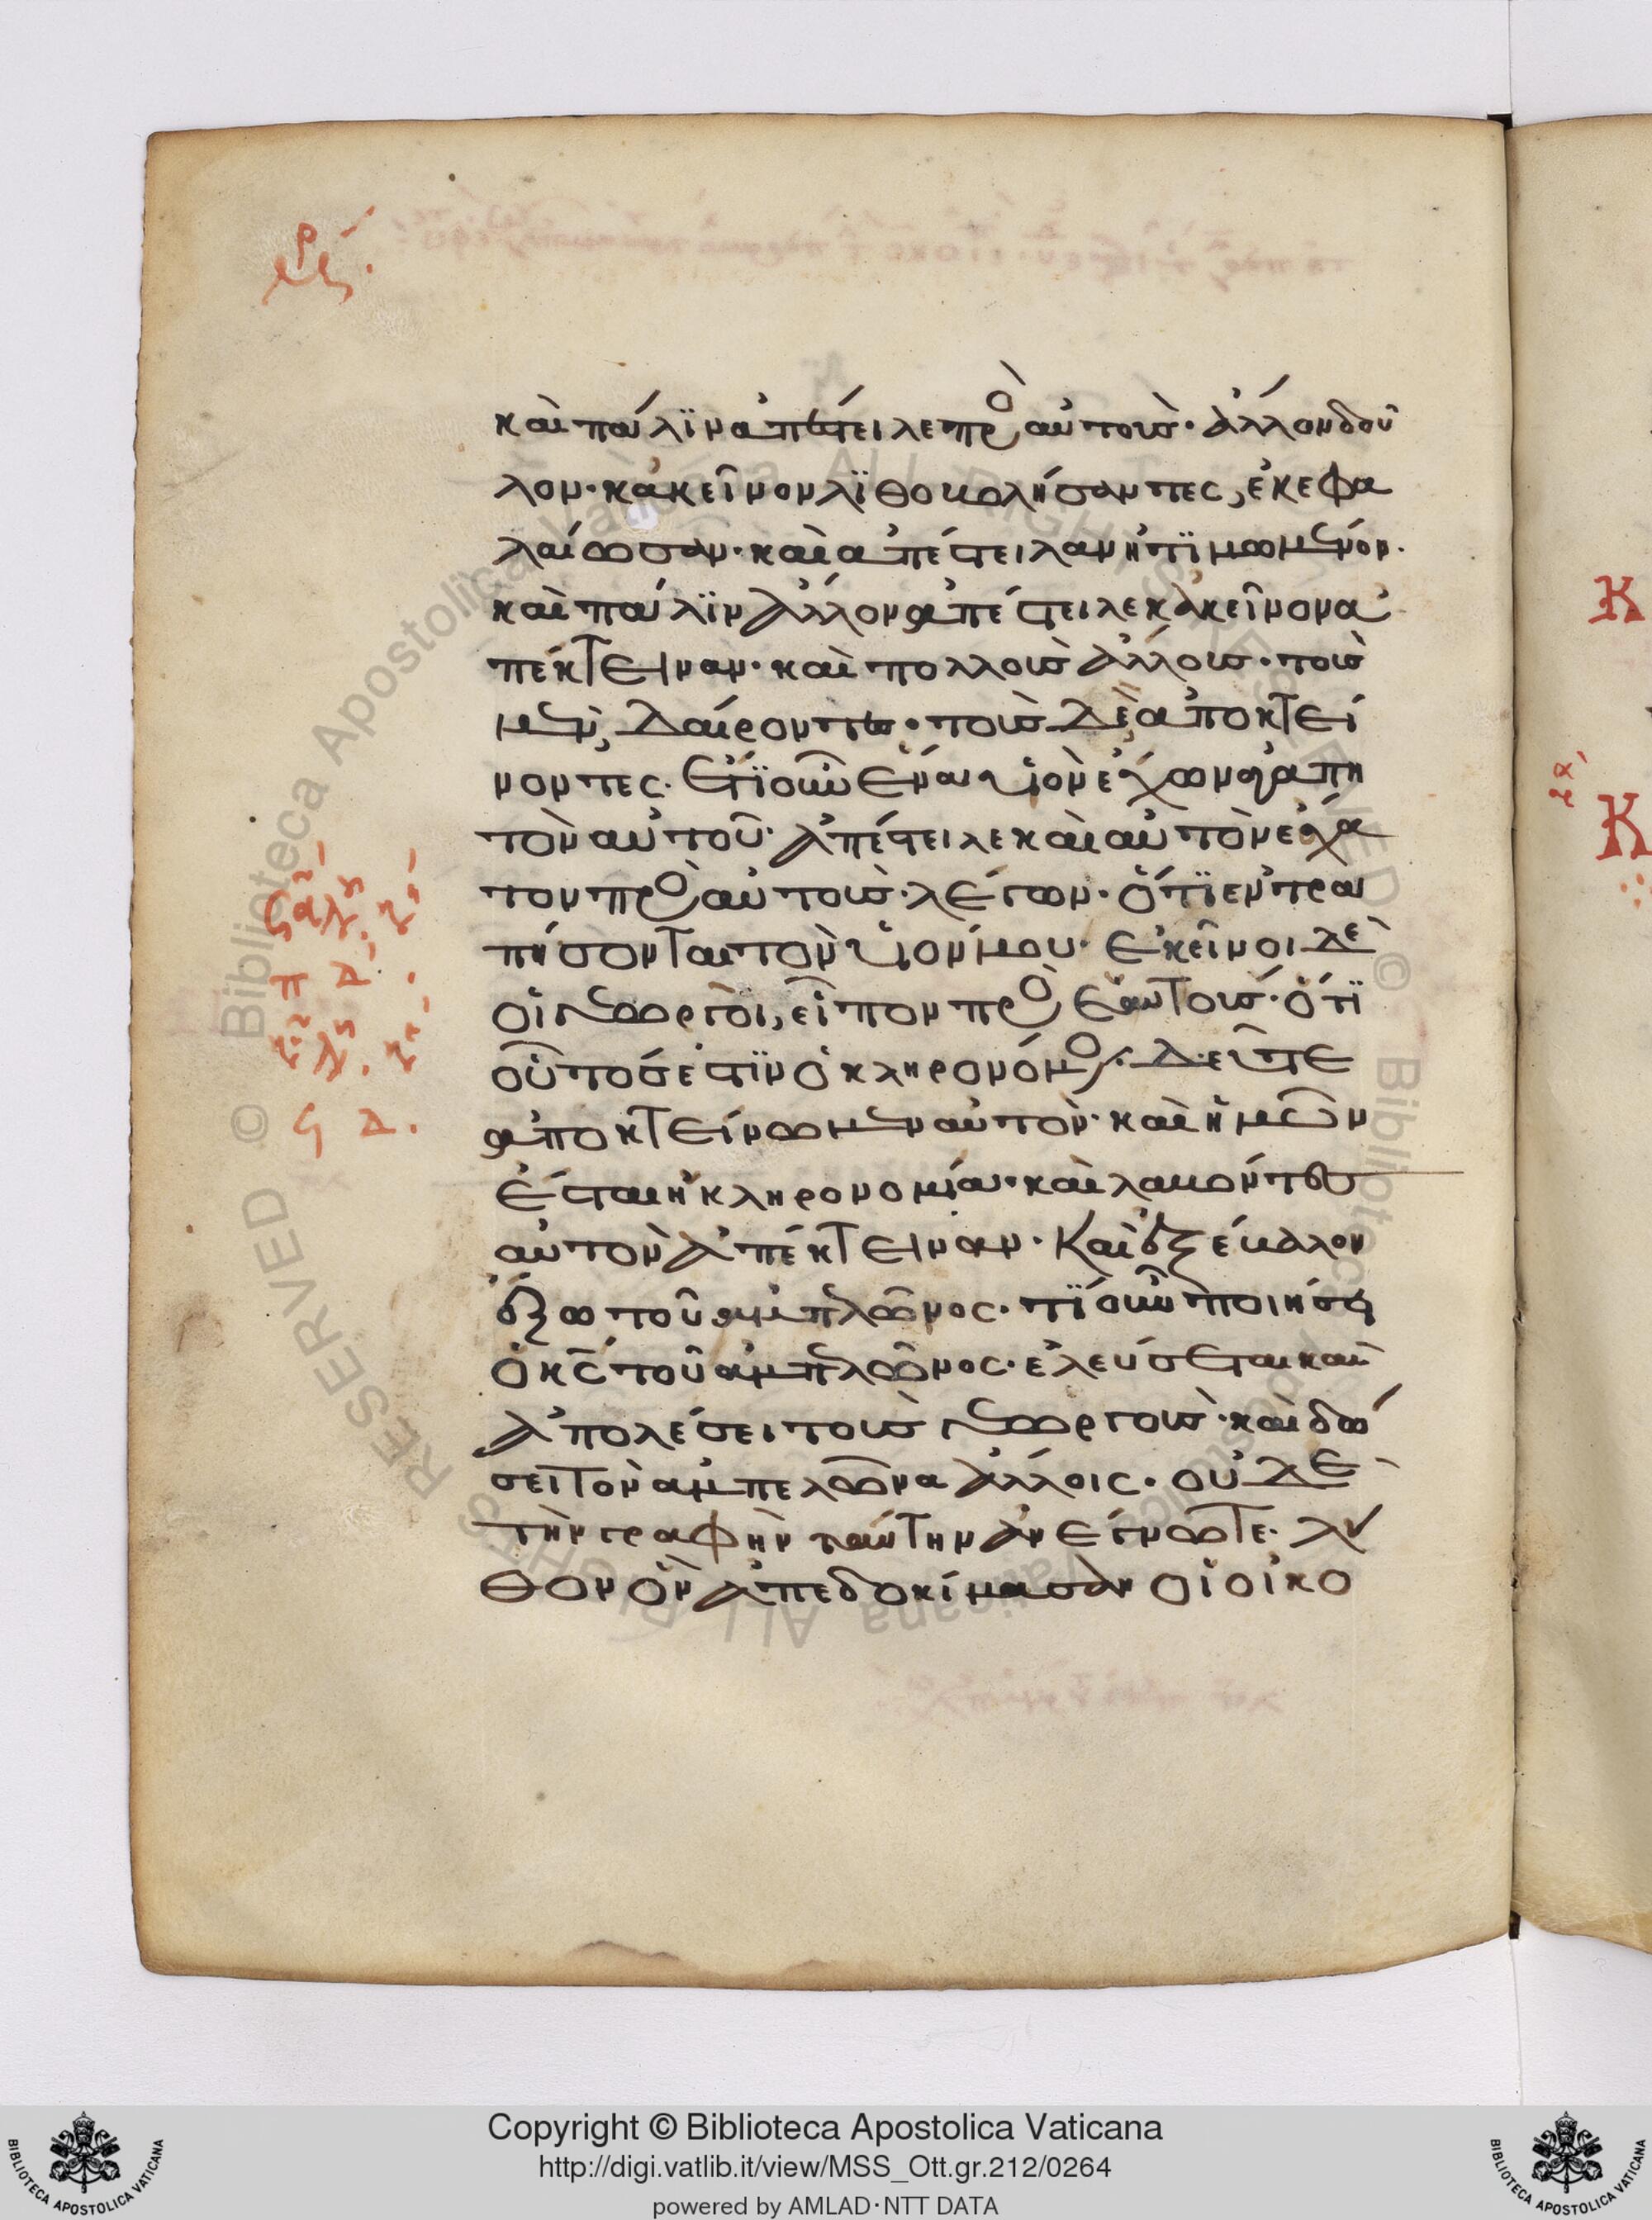 καὶ πάλϊν ἀπέστειλε πρὸς αὐτοὺς· ἄλλον δοῦ
λον· κἀκεῖνον λϊθοβολήσαντες, ἐκεφα
λαίωσαν· καὶ ἀπέστειλαν ἠτϊμωμένον·
καὶ πάλϊν ἄλλον ἀπέστειλε κἀκεῖνον ἀ
πέκτειναν· καὶ πολλοὺς ἄλλους· τοὺς
μὲν, δαίροντες· τοὺς δὲ ἀποκτεί
νοντες. Ἔτϊ οὖν ἕνα υἱὸν ἔχων ἀγαπη
τὸν αὐτοῦ· ἀπέστειλε καὶ αὐτὸν ἔσχα
τον πρὸς αὐτοὺς· λέγων· ὅτϊ ἐντρα
πήσονται τὸν υἱόν μου· Ἐκεῖνοι δὲ
οἱ γεωργοὶ, εἶπον πρὸς ἑαυτούς· ὅτϊ
οὗτός ἐστϊν ὁ κληρονόμος· δεῦτε
ἀποκτείνωμεν αὐτὸν· καὶ ἡμῶν
ἔσται ἡ κληρονομία· καὶ λαβόντες
αὐτὸν ἀπέκτειναν· Καὶ ἐξέβαλον
ἔξω τοῦ ἀμπελῶνος· τϊ οὖν ποιήσει
ὁ κς τοῦ ἀμπελῶνος· ἐλεύσεται καὶ
ἀπολέσει τοὺς γεωργοὺς· καὶ δώ
σει τὸν ἀμπελῶνα ἄλλοις· οὐδὲ
τὴν γραφὴν ταύτην ἀνέγνωτε· λί
θον ὃν ἀπεδοκίμασαν οἱ οἰκο
Κ
Κ
© Biblioteca Apostolica Vaticana ALL RIGHTS RESERVED © Biblioteca Apostolica Vaticana ALL RIGHTS RESERVED
Copyright © Biblioteca Apostolica Vaticana
http://digi.vatlib.it/view/MSS_Ott.gr.212/0264
powered by AMLAD·NTT DATA
BIBLIOTECA APOSTOLICA VATICANA
BIBLIOTECA APOSTOLICA VATICANA